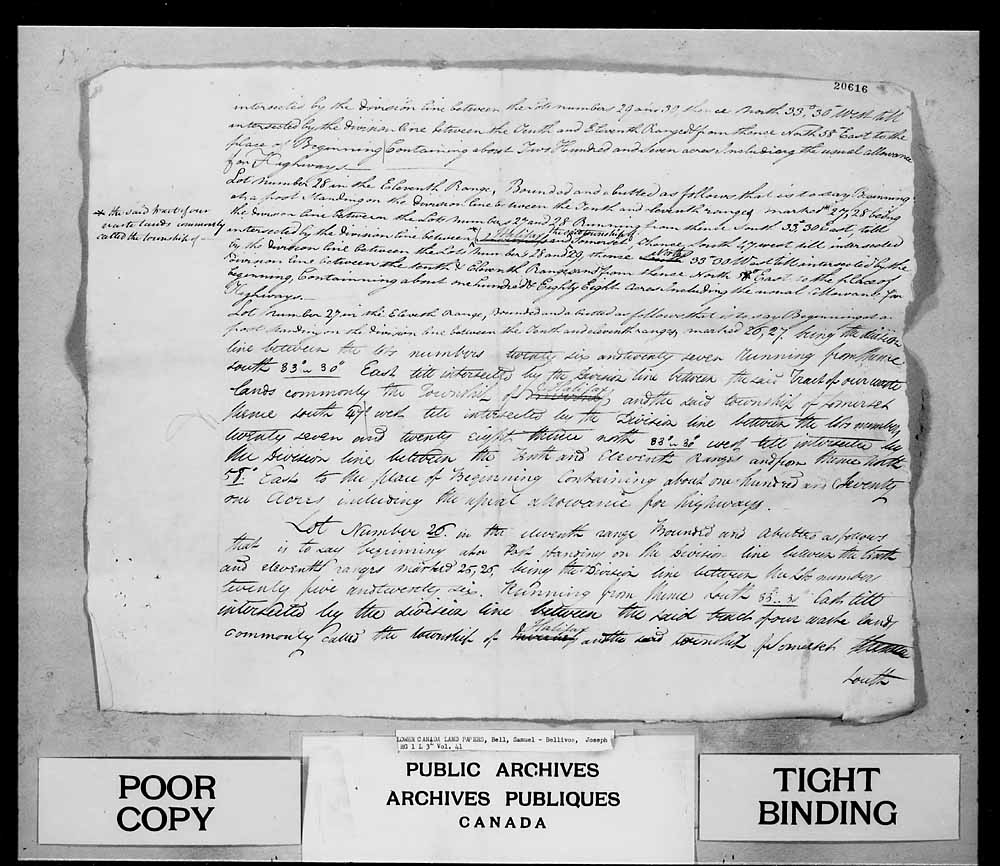 20616
intersected by the division line between the lots numbers 29 and 30, thence North 33° 30' West till
intersected by the division line between the Tenth and Eleventh Ranges & from thence North 58° East to the
place of Beginning Containing about Two Hundred and Seven acres Including the usual allowance
for Highways
Lot Number 28 in the Eleventh Range, Bounded and abutted as follows that is to say Beginning
at a post Standing on the Division line between the Tenth and Eleventh ranges marked 27, 28 being
the division line between the Lots Numbers 27 and 28 Running from thence South 33° 30' East, till
* the said tract of our
waste lands commonly
called the township of
intersected by the Division line between * Halifax the township of and Somerset Thence South 47 west till intersected
by the division line between the Lots Number 28 and 29, thence North 33° 30 West till intersected by the
Division line between the tenth & Eleventh Ranges and from thence North 58 East to the place of
beginning, Containing about one hundred & Eighty Eight acres Including the usual allowance for
Highways.
Lot Number 27 in the Eleventh Range, Bounded and abutted as follows that is to say Beginning at a
post standing on the division line between the Tenth and eleventh ranges marked 26, 27. being the division
line between the lots numbers twenty six and twenty seven Running from thence
South 33° 30' East till intersected by the Division line between the said Tract of our waste
Lands commonly the Township of Halifax and the said township of Somerset
thence south 47° west till intersected by the Division line between the lots numbers
twenty seven and twenty eight. thence north 33° 30' west till intersected by
the Division line between the Tenth and Eleventh Ranges and from thence North
58° East to the place of Beginning Containing about one hundred and Seventy
one Acres including the usual allowance for highways.
Lot Number 26. in the eleventh range Bounded and abutted as follows
that is to say beginning at a Post standing on the Division line between the tenth
and eleventh ranges marked 25, 26, being the Division line between the lots numbers
twenty five and twenty six. Running from thence South 33° 30' East till
intersected by the division line between the said tract of our waste lands
commonly called the township of Halifax and the said township of Somerset thence
South
LOWER CANADA LAND PAPERS, Bell, Samuel - Bellivos, Joseph
RG 1 L 3" Vol. 41
POOR
COPY
PUBLIC ARCHIVES
ARCHIVES PUBLIQUES
CANADA
TIGHT
BINDING